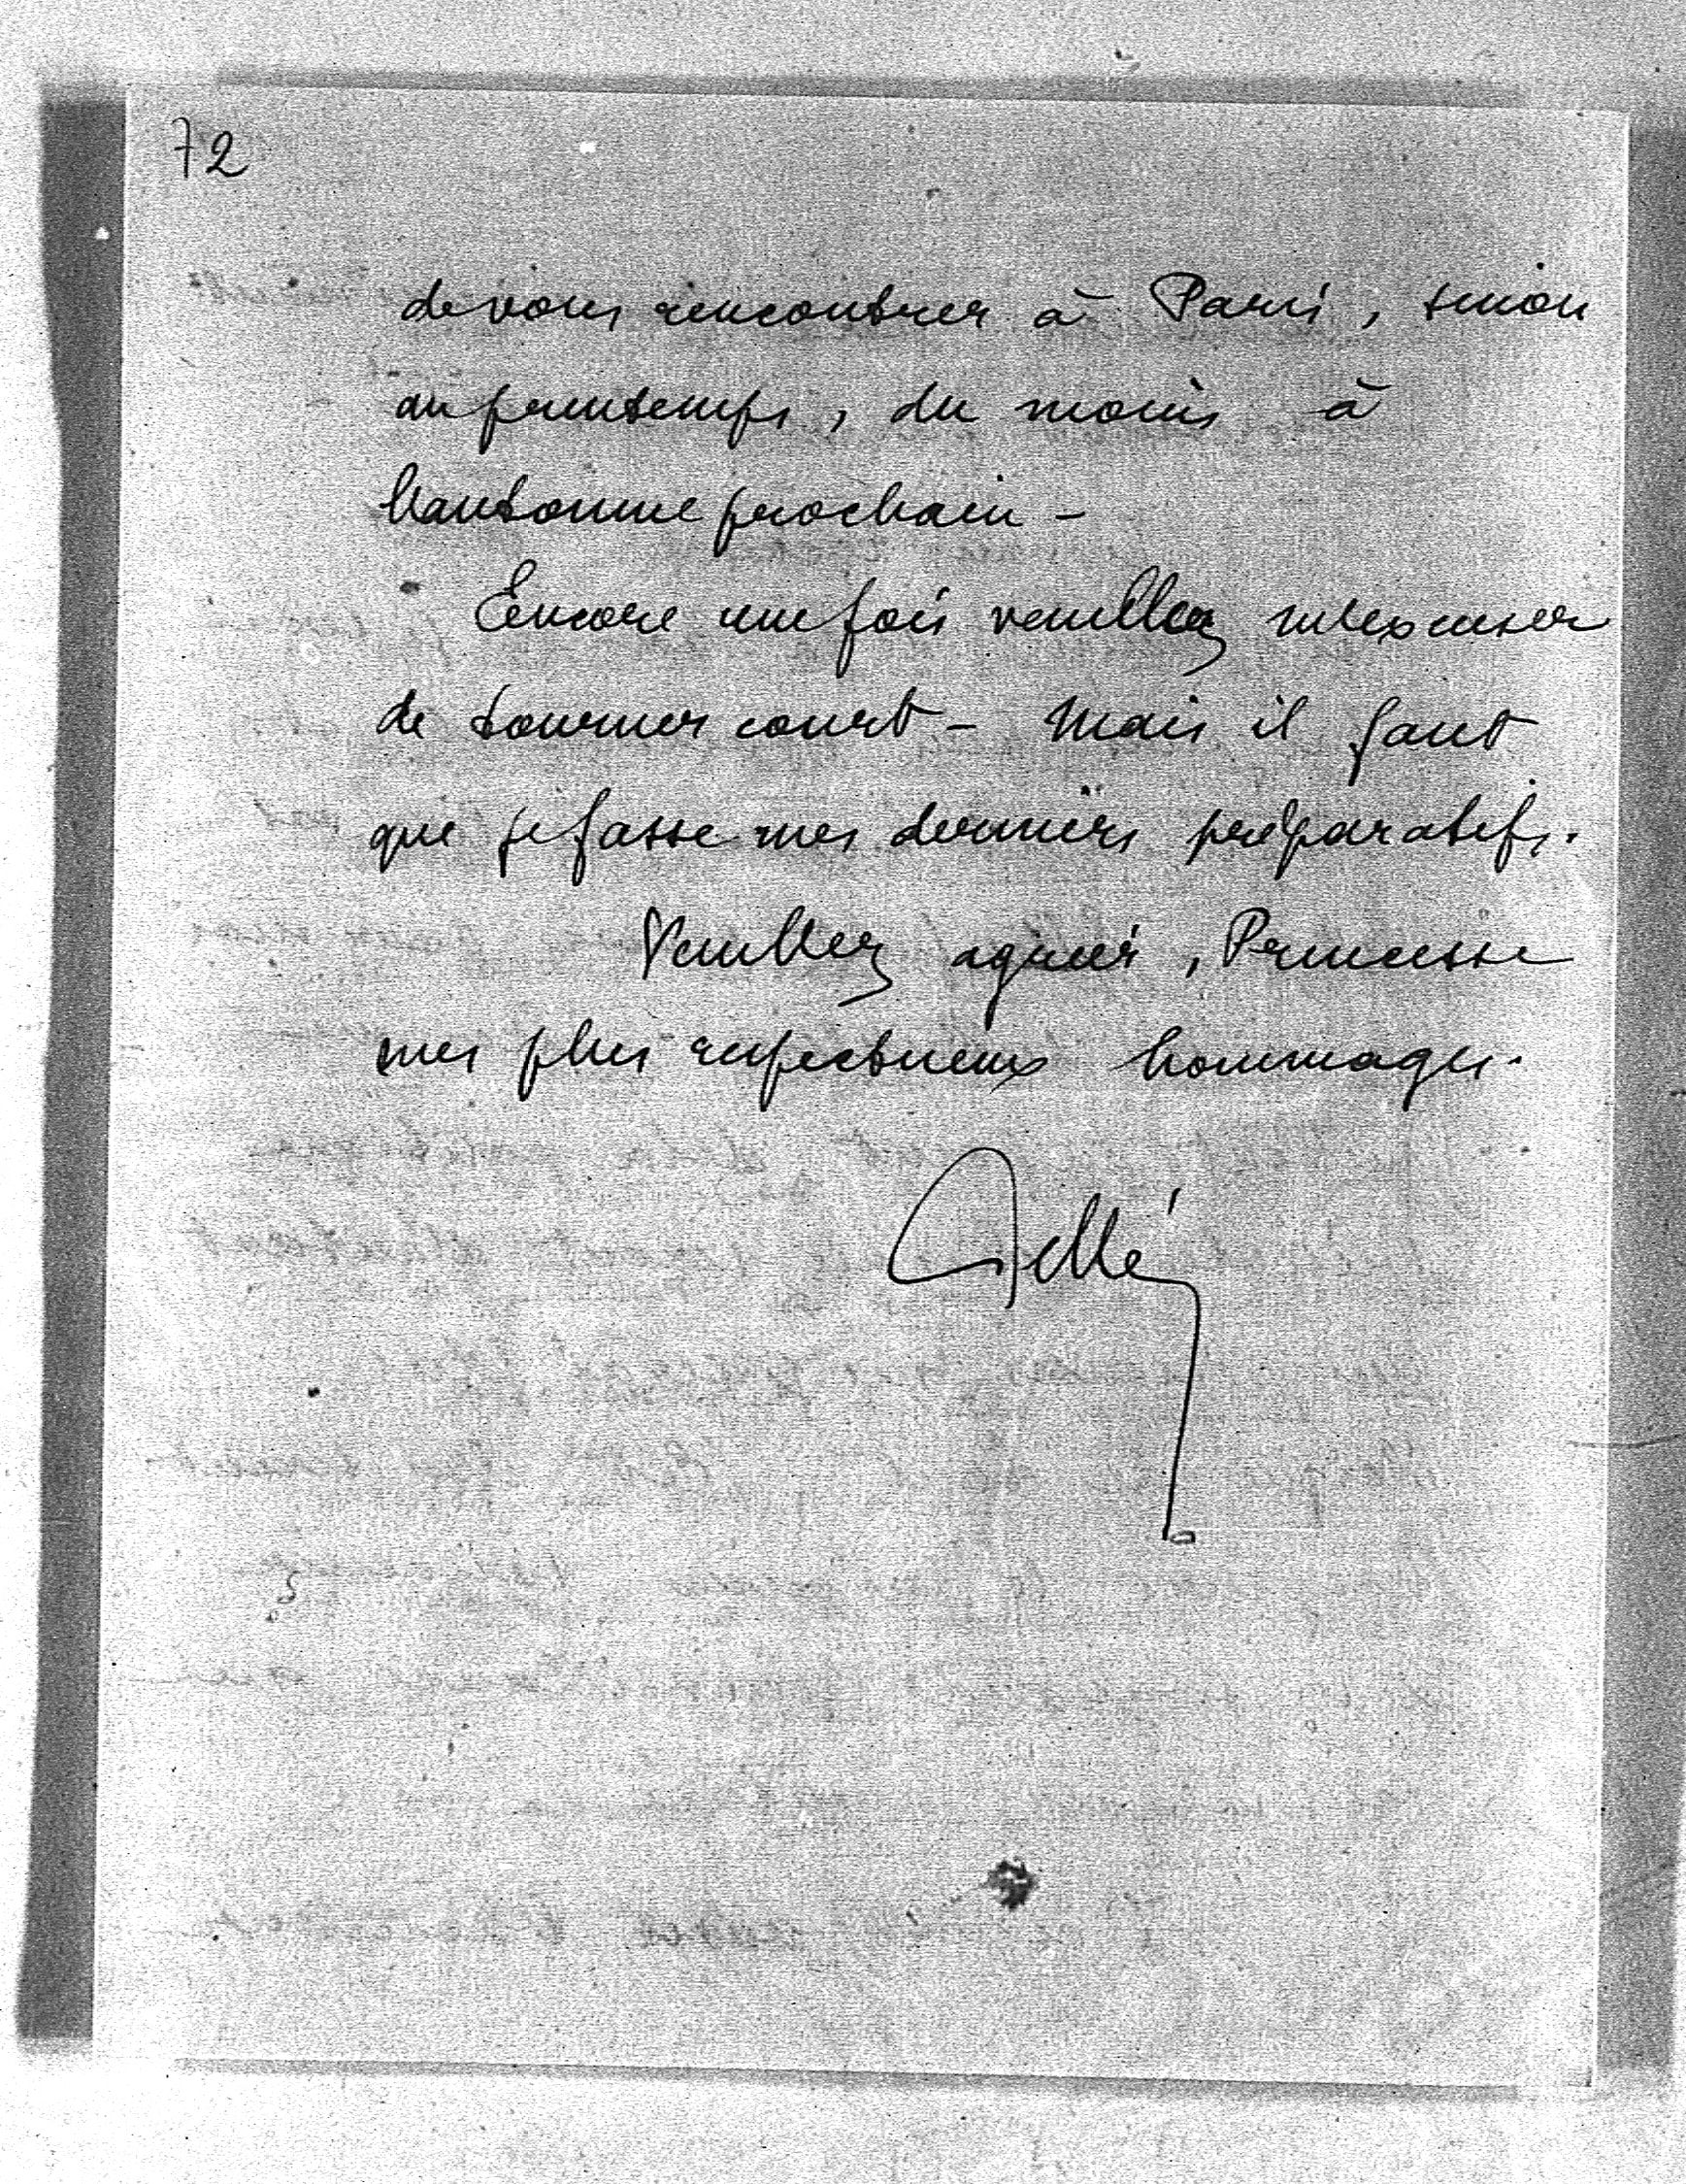 72
de vous rencontrer à Paris, sinon
au printemps, du moins à
l'automne prochain -
Encore une fois veuillez m'excuser
de tourner court - Mais il faut
que je fasse mes derniers préparatifs.
Veuillez agréer, Princesse
mes plus respectueux hommages.